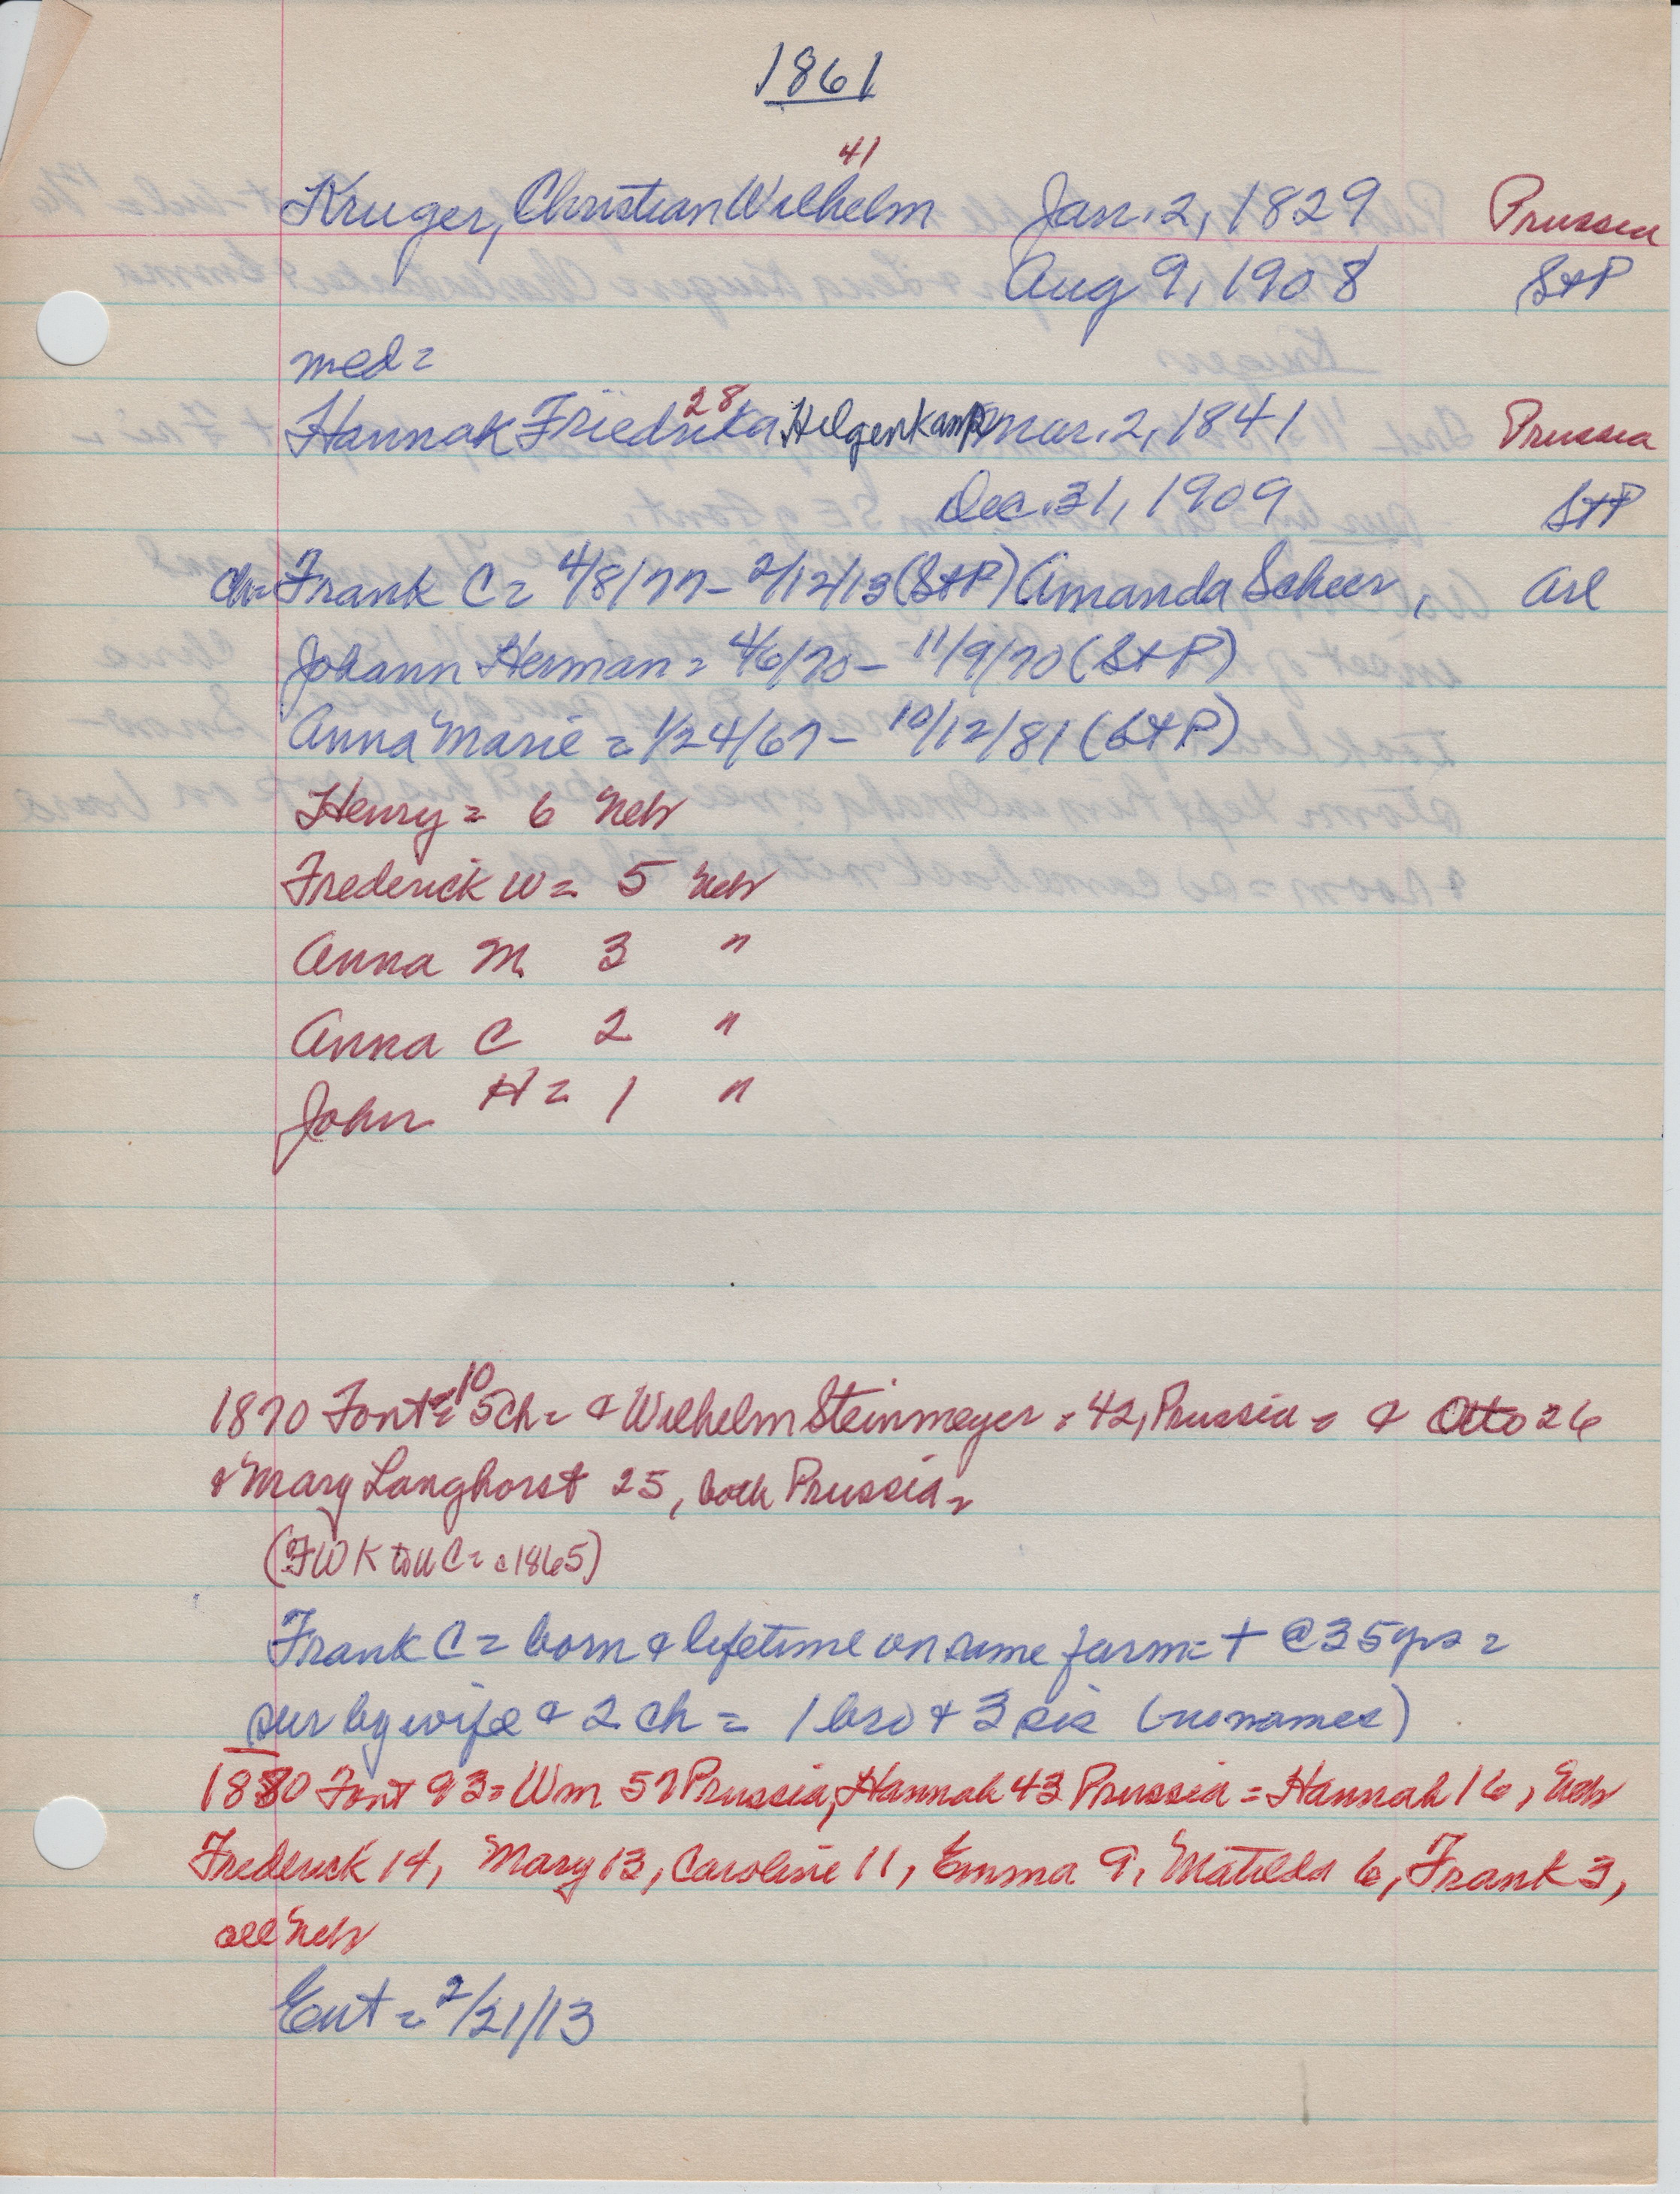 1861
41
Kruger, Christian Wilhelm Jan. 2, 1829 Prussia
Aug 9, 1908 St P
med =
28
Hannah Friedrika Helgenkamp mar. 2, 1841 Prussia
Dec. 31, 1909 St P
ch = Frank C = 4/8/77 - 2/12/13 (St P) Amanda Scheer, Arl
Johann Herman = 4/6/70 - 11/9/70 (St P)
Anna Marie = 1/24/67 - 10/12/81 (St P)
Henry = 6 Neb
Frederick W = 5 Neb
Anna M 3 "
Anna C 2 "
John H = 1 "
10
1870 Font = 5ch = & Wilhelm Steinmeyer = 42, Prussia = & Otto 26
& Mary Langhorst 25, both Prussia =
(FWK to W C = c 1865)
Frank C = born & lifetime on same farm = + @ 35 yrs =
sur by wife & 2 ch = 1 bro & 3 sis (no names)
1880 Font 93 = Wm 57 Prussia, Hannah 43 Prussia = Hannah 16, Neb
Frederick 14, Mary 13, Caroline 11, Emma 9, Matilda 6, Frank 3,
all Neb
Ent = 2/21/13